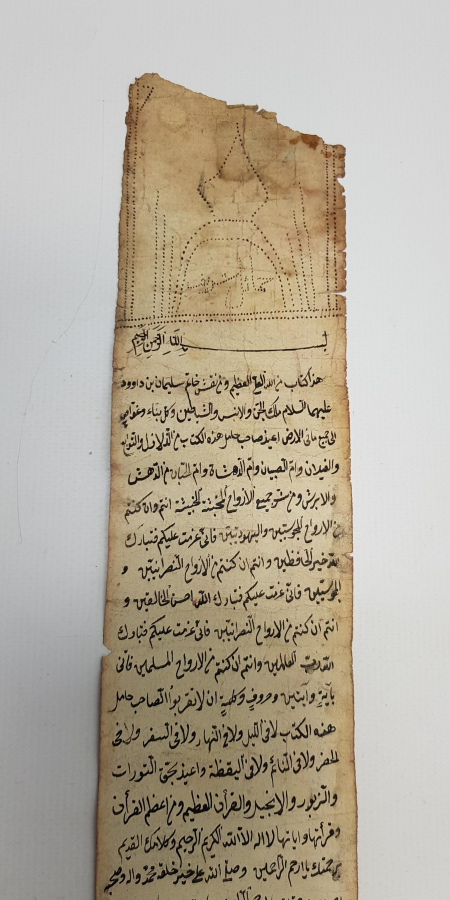 بسم الله الرحمن الرحيم
هذا كتاب من الله العلي العظيم ومن نقش خاتم سليمان بن داوود
عليهما السلام ملك الجن والانس والشياطين وكل بناء وغواص
الى جميع مافي الارض اعيذ صاحب حامل هذه الكتب من الدلازل والتوابع
والغيلان وام الصبيان وام
والابرش ومن ستر جميع الارواح المجننة الخبيثة انتم وان كنتم
من الارواح المجوسيين واليهوديين فاني عزمت عليكم فتبارك
الله خير الحافظين وانتم ان كنتم من الارواح النصرانيين و
المجوسيين فاني عزمت عليكم فتبارك الله احسن الخالقين و
انتم ان كنتم من الارواح النصرانيين فاني عزمت عليكم فتبارك
الله رب العالمين وانتم ان كنتم من الارواح المسلمين فاني
بآية وآيتين وحروف وكلمة ان لا تقربوا الصاحب حامل
هذه الكتب لا في الليل ولا في النهار ولا في السفر ولا في
الحضر ولا في النائم ولا في اليقظة واعيذ بحق التورات
والزبور والانجيل والقرآن العظيم ومن اعظم القرآن
واياتها لا اله الا الله الكريم الرحيم وكلامك القديم
برحمتك ياارحم الراحمين وصلى الله على خير خلقه محمد واله وصحبه